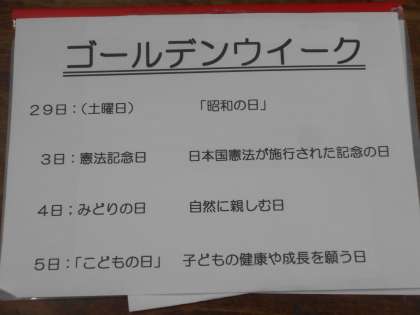 ゴールデンウイーク
29日：（土曜日） 「昭和の日」
3日：憲法記念日 日本国憲法が施行された記念の日
4日；みどりの日 自然に親しむ日
5日：「こどもの日」 子どもの健康や成長を願う日